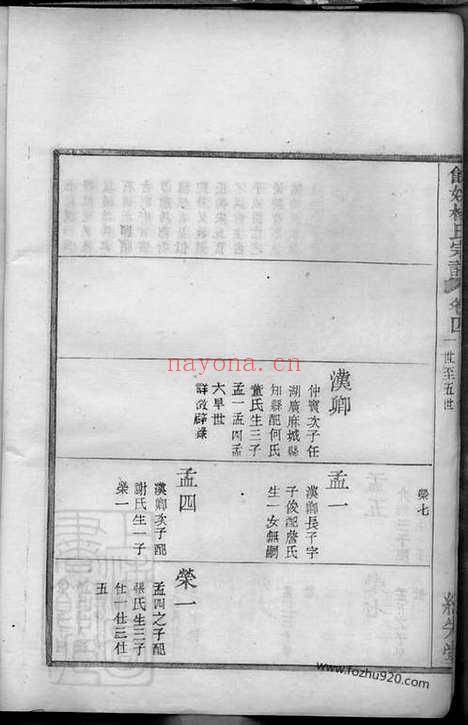 卷四
一世至五世
榮七
漢卿
仲實次子任
湖廣麻城縣
知縣配何氏
董氏生三子
孟一孟四孟
六早世
詳徵辟錄
孟一
漢卿長子字
子俊配詹氏
生一女無嗣
孟四
漢卿次子配
謝氏生一子
榮一
榮一
孟四之子配
張氏生三子
仕一仕三仕
五
nayona.cn
www.fozhu920.com